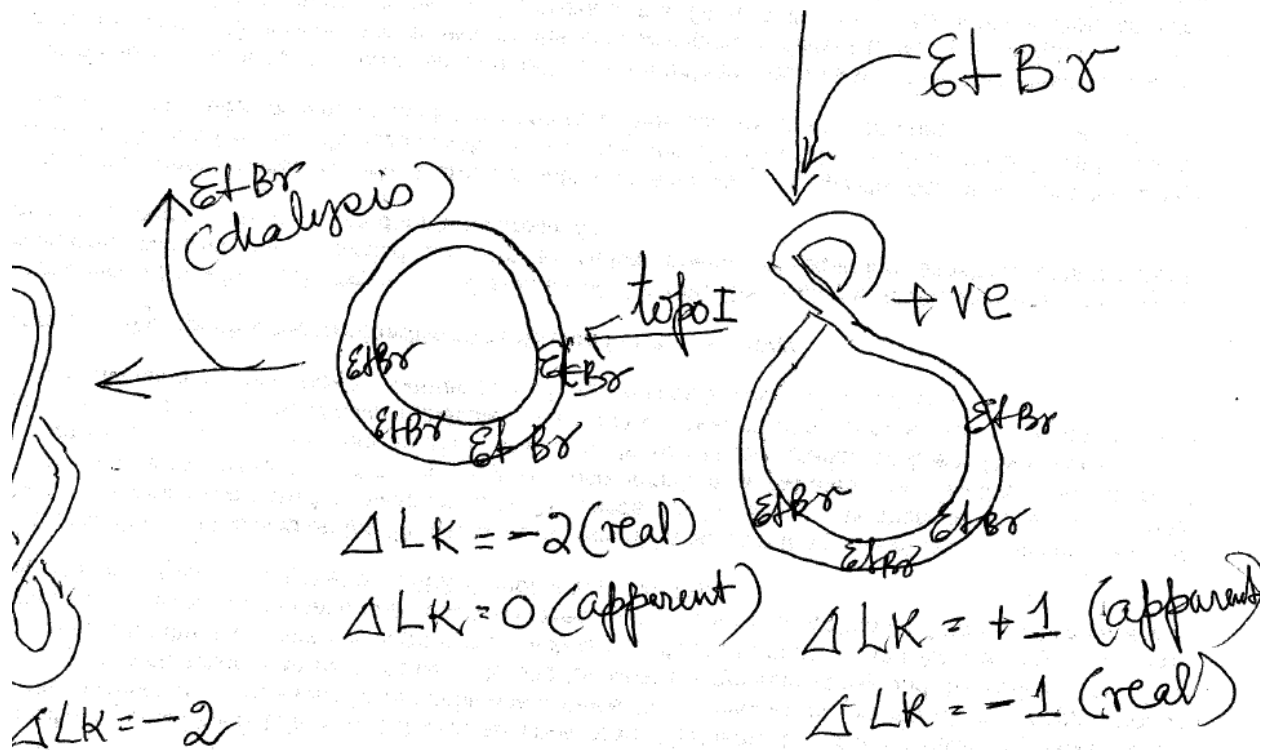 EtBr
EtBr
(dialysis)
topoI
+ve
EtBr
EtBr
EtBr
EtBr
EtBr
EtBr
EtBr
EtBr
ΔLK = -2 (real)
ΔLK = 0 (apparent)
ΔLK = +1 (apparent)
ΔLK = -1 (real)
ΔLK = -2